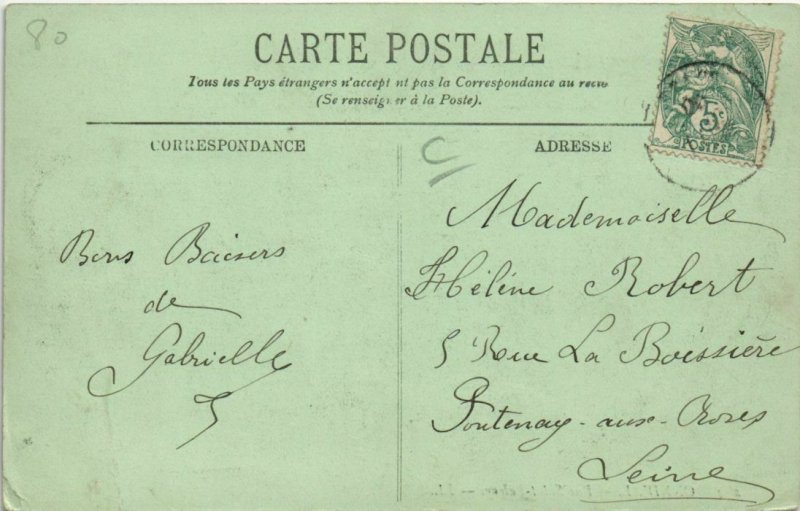 80
CARTE POSTALE
Tous les Pays étrangers n'accept nt pas la Correspondance au recto
(Se renseigner à la Poste).
CORRESPONDANCE
ADRESSE
5c
POSTES
Bons Baisers
de
Gabrielle
Mademoiselle
Hélène Robert
5 Rue La Boissière
Fontenay-aux-Roses
Seine